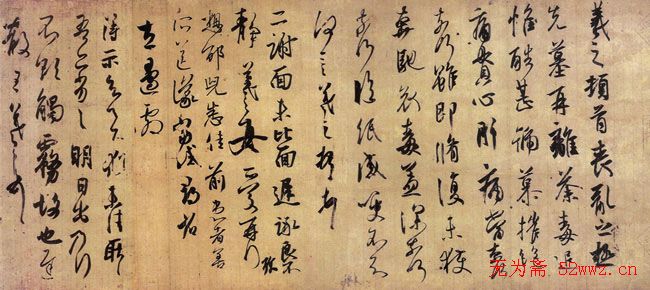 羲之頓首喪亂之極
先墓再離荼毒追
惟酷甚號慕摧絕
痛貫心肝痛當奈何
奈何雖即脩復未獲
奔馳哀毒益深奈何
奈何臨紙感哽不知
何言羲之頓首頓首
二謝面未比面遲詠良不
靜羲之女愛再拜
想邵兒悉佳前患者善
所送議當試尋省
左邊劇
得示知足下猶未佳耿耿
吾亦劣劣明日出乃行
不欲觸霧故也遲
散王羲之頓首
无为斋 52wwz.cn